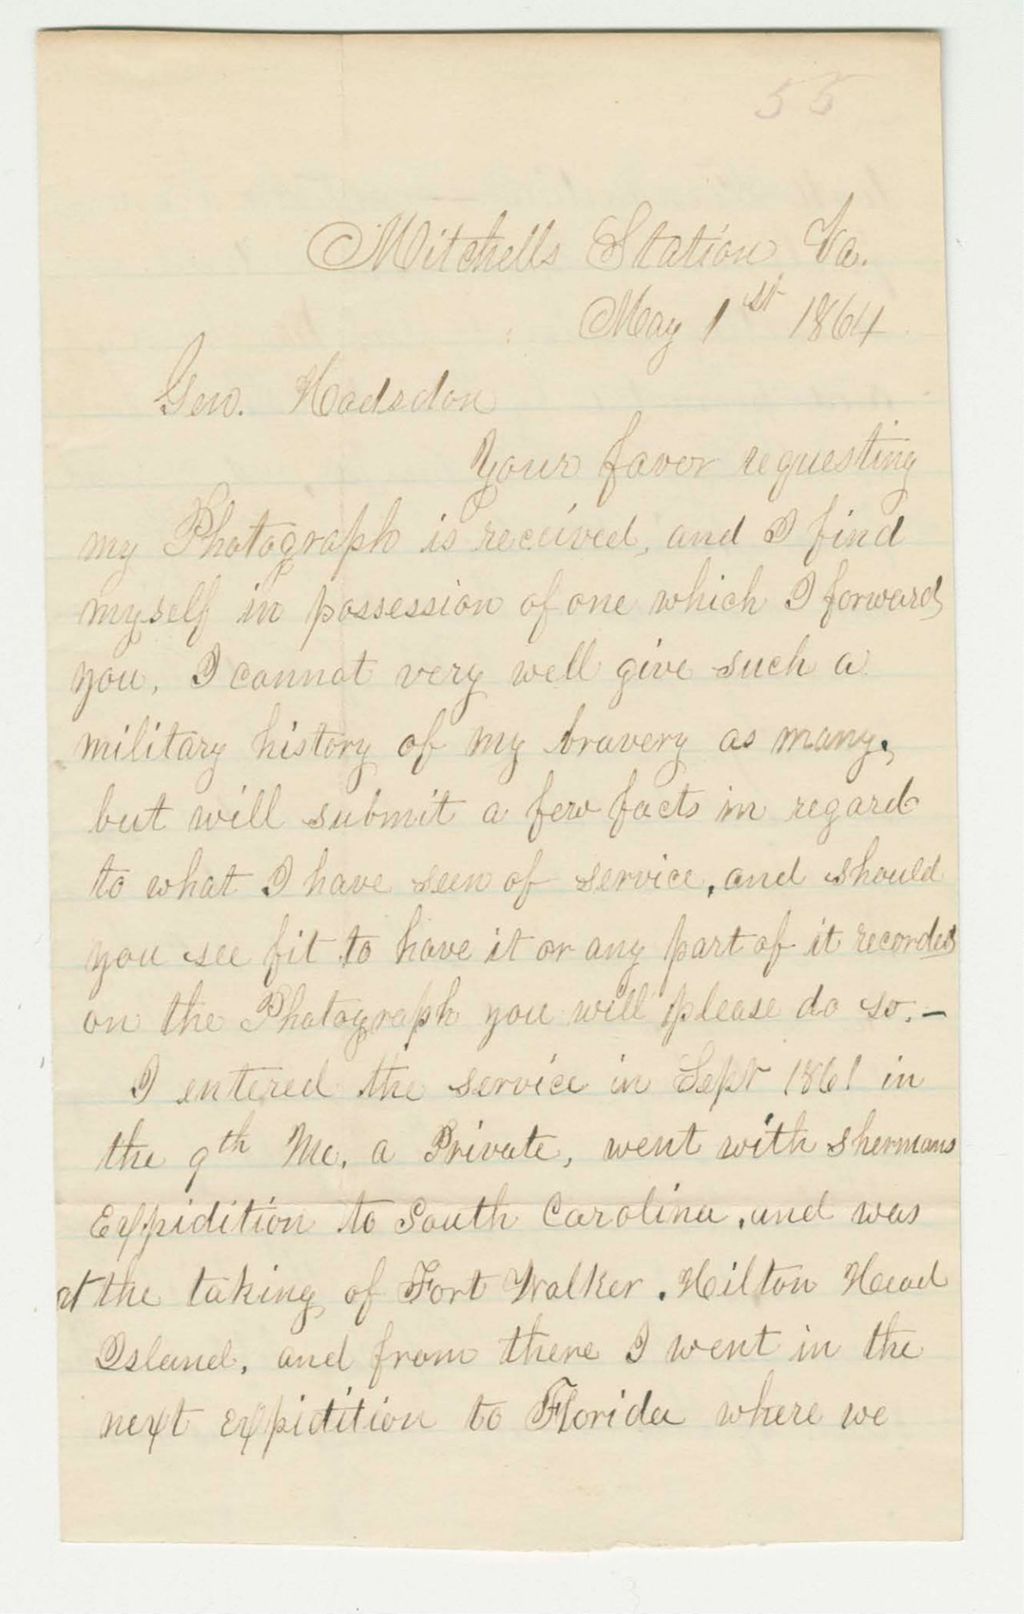 55
Mitchells Station Va.
May 1st 1864
Gen. Hadsdon
Your favor requesting
my Photograph is received, and I find
myself in possession of one which I forward
you. I cannot very well give such a
military history of my bravery as many,
but will submit a few facts in regard
to what I have seen of service, and should
you see fit to have it or any part of it recorded
on the Photograph you will please do so. —
I entered the service in Sept 1861 in
the 9th Me. a Private, went with Shermans
Expidition to South Carolina, and was
at the taking of Fort Walker. Hilton Head
Island, and from there I went in the
next expidition to Florida where we